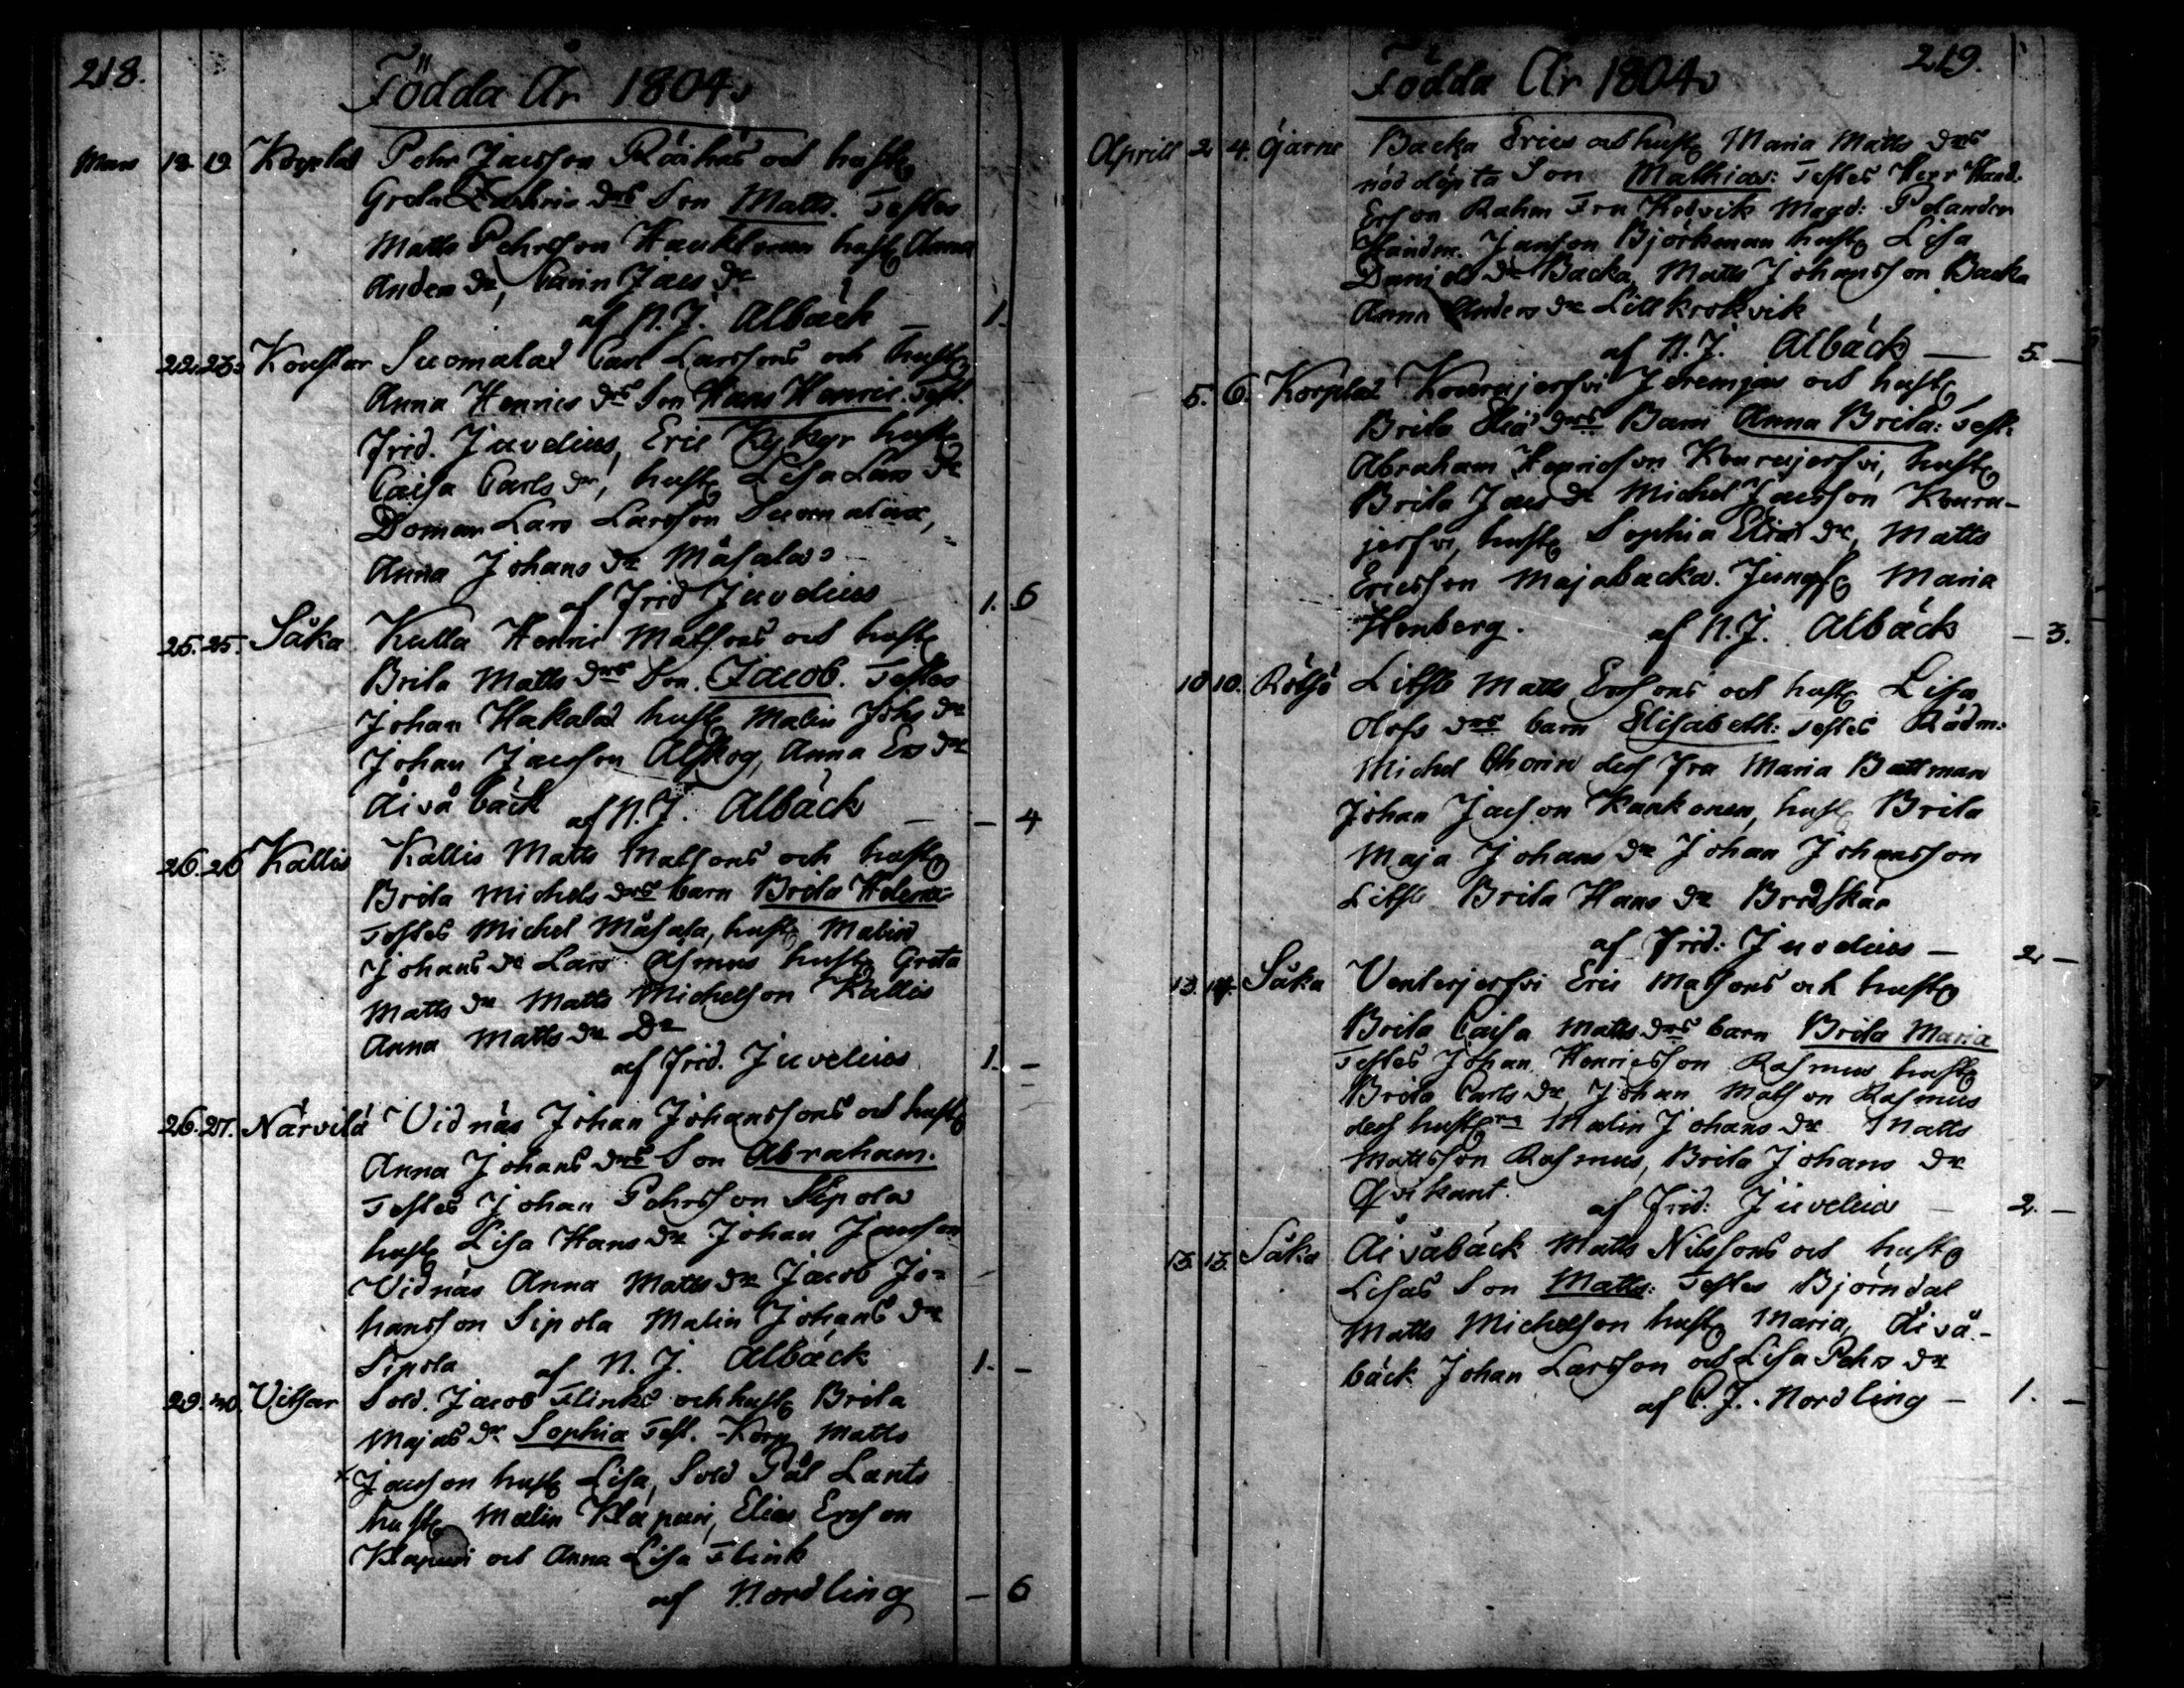 218.
Födda År 1804.
Mars 18. 19. Korplax Pehr Jacsson Råihäs och hustr
Greta drs Son Matts. Testes
Matts Pehrsson hustr Anna
Anders dr, Carin Jacs dr
af N. J. Albäck — 1.
22. 23. Suomalax Carl Larssons och hustr
Anna Henrics drs Son Hans Henric. Test.
Frid. Juvelius, Eric Kykyr hustr
Caisa Carls dr, hustr Lisa Lars dr
Doman Lars Larsson
Anna Johans dr Måsala
af Frid Juvelius 1. 6
25. 25. Såka Kulla Henric Matsons och hustr
Brita Matts drs Son. Jacob. Testes
Johan Hakalax hustr Malin Johs dr
Johan Jacsson Alskog, Anna Ers dr
Åisåbäck af N. J. Albäck — — 4
26. 26 Kallis Kallis Matts Matsons och hustr
Brita Michels drs barn Brita Helena
Testes Michel Måsala, hustr Malin
Johans dr Lars Åsmus hustr Greta
Matts dr Matts Michelson Kallis
Anna Matts dr Dr
af Frid. Juvelius 1. —
26. 27. Närvilä Vidnäs Johan Johanssons och hustr
Anna Johans drs Son Abraham.
Testes Johan Pehrsson Sipola
hustr Lisa Hans dr Johan Janson
Vidnäs Anna Matts dr Jacob Jo=
hansson Sipola Malin Johans dr
Sipola af N. J. Albäck 1. —
29. 30. Vitsar Sold. Jacob Flinks och hustr Brita
Majas dr Sophia Test. Korp Matts
Jacsson hustr Lisa, Sold Pål Lants
hustr Malin Klapuri, Elias Ersson
Klapuri och Anna Lisa Flink
af Nordling — 6
219.
Födda År 1804.
Aprill 2 4. Öjarne Backa Erics och hustr Maria Matts drs
nöddöpta Son Mathias: Testes Herr Hand.
Ersson Rahm Fru Hedvik Magd: Polander
Handm. Janson Björkman hustr Lisa
Daniels dr Backa, Matts Johansson Backa
Anna Anders dr Lillkrokvik
af N. J. Albäck — 5. —
5. 6. Korplax Kourujerfvi Jeremias och hustr
Brita Eliæ drs Barn Anna Brita: Test:
Abraham Henricson Kourujerfvi, hustr
Brita Jacs dr Michel Jacsson Kouru-
jerfvi, hustr Sophia Elias dr, Matts
Ericsson Majabacka. Jungfr Maria
Henberg. af N. J. Albäck — 3.
10 10. Rötsö Litsle Matts Ersons och hustr Lisa
Olofs drs barn Elisabeth: Testes Rådm:
Michel Chorin dess Fru Maria Battman
Johan Jacson Kankonen, hustr Brita
Maja Johans dr Johan Johansson
Litsle Brita Hans dr Brodskär
af Frid: Juvelius — 2 —
13. 14. Såka Venterjerfvi Eric Matsons och hustr
Brita Caisa Matts drs barn Brita Maria
Testes Johan Henricsson Rasmus hustr
Brita Carls dr Johan Matson Rasmus
dess hustr Malin Johans dr Matts
Mattsson Rasmus, Brita Johans dr
Qvikant. af Frid: Juvelius — 2. —
13. 15. Såka Åisåbäck Matts Nilssons och hustr
Lisas Son Matts: Testes Björndal
Matts Michelson hustr Maria, Åiså-
bäck Johan Larsson och Lisa Pehrs dr
af C. J. Nordling — 1. —